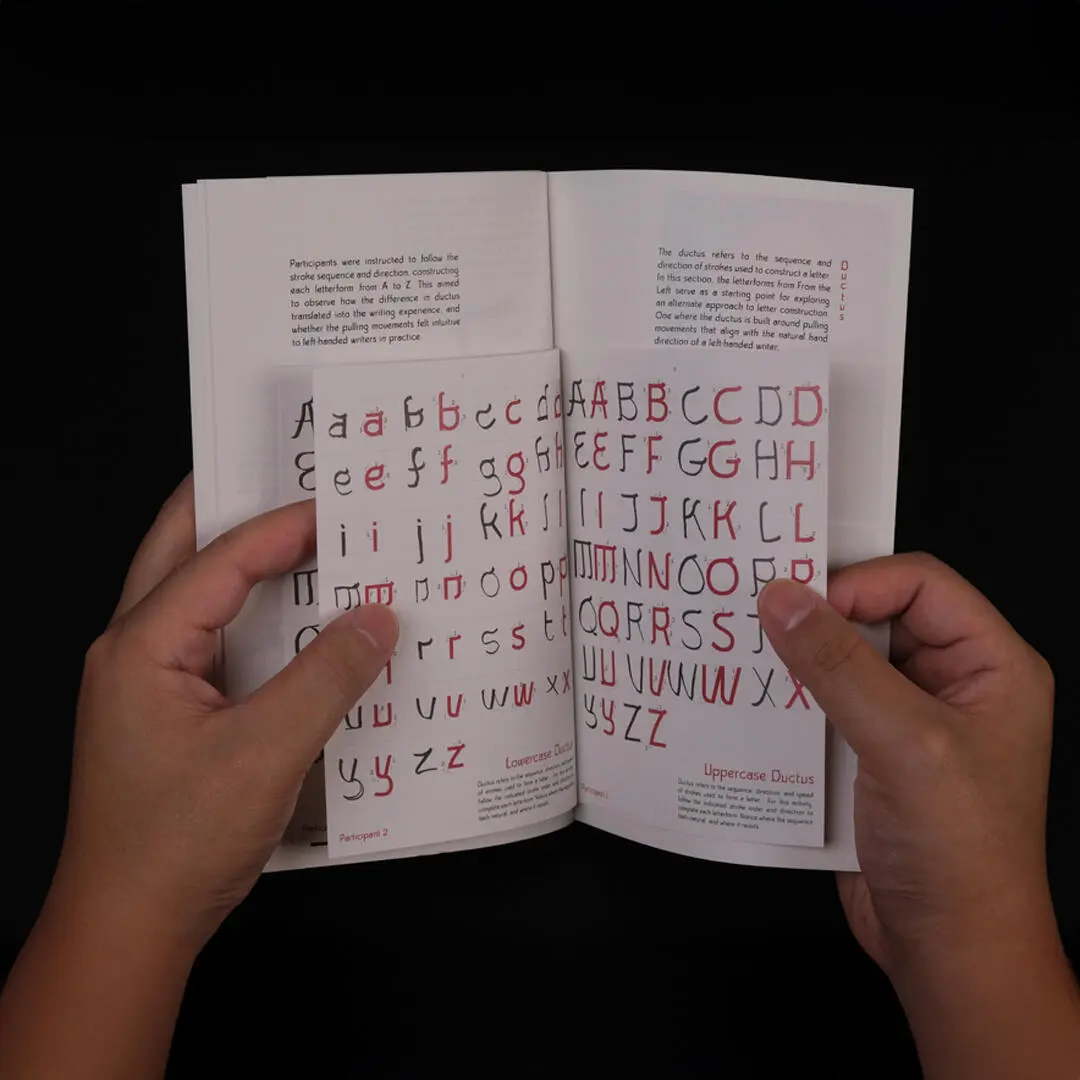 Participants were instructed to follow the
stroke sequence and direction, constructing
each letterform from A to Z. This aimed
to observe how the difference in ductus
translated into the writing experience, and
whether the pulling movements felt intuitive
to left-handed writers in practice.
A
E
a a b b c c d d
e e f f g g h h
i i j j k k l l
m m n n o o p p
r r s s t t
u u v v w w x x
y y z z
Lowercase Ductus
Ductus refers to the sequence, direction, and speed
of strokes used to form a letter. For this activity,
follow the indicated stroke order and direction to
complete each letterform. Notice where the sequence
feels natural, and where it resists.
Participant 2
The ductus refers to the sequence and
direction of strokes used to construct a letter.
In this section, the letterforms from From the
Left serve as a starting point for exploring
an alternate approach to letter construction
One where the ductus is built around pulling
movements that align with the natural hand
direction of a left-handed writer.
Ductus
A A B B C C D D
E E F F G G H H
I I J J K K L L
M M N N O O P P
Q Q R R S S T
U U V V W W X X
y y Z Z
Uppercase Ductus
Ductus refers to the sequence, direction, and speed
of strokes used to form a letter. For this activity,
follow the indicated stroke order and direction to
complete each letterform. Notice where the sequence
feels natural, and where it resists.
Participant 1